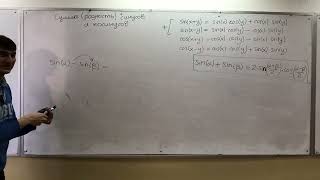 Сумма (разность) синусов
и косинусов
sin(x+y) = sin(x)·cos(y) + cos(x)·sin(y)
sin(x-y) = sin(x)·cos(y) - cos(x)·sin(y)
cos(x+y) = cos(x)·cos(y) - sin(x)·sin(y)
cos(x-y) = cos(x)·cos(y) + sin(x)·sin(y)
sin(α) - sin(β) =
sin(α) + sin(β) = 2·sin(α+β/2)·cos(α-β/2)